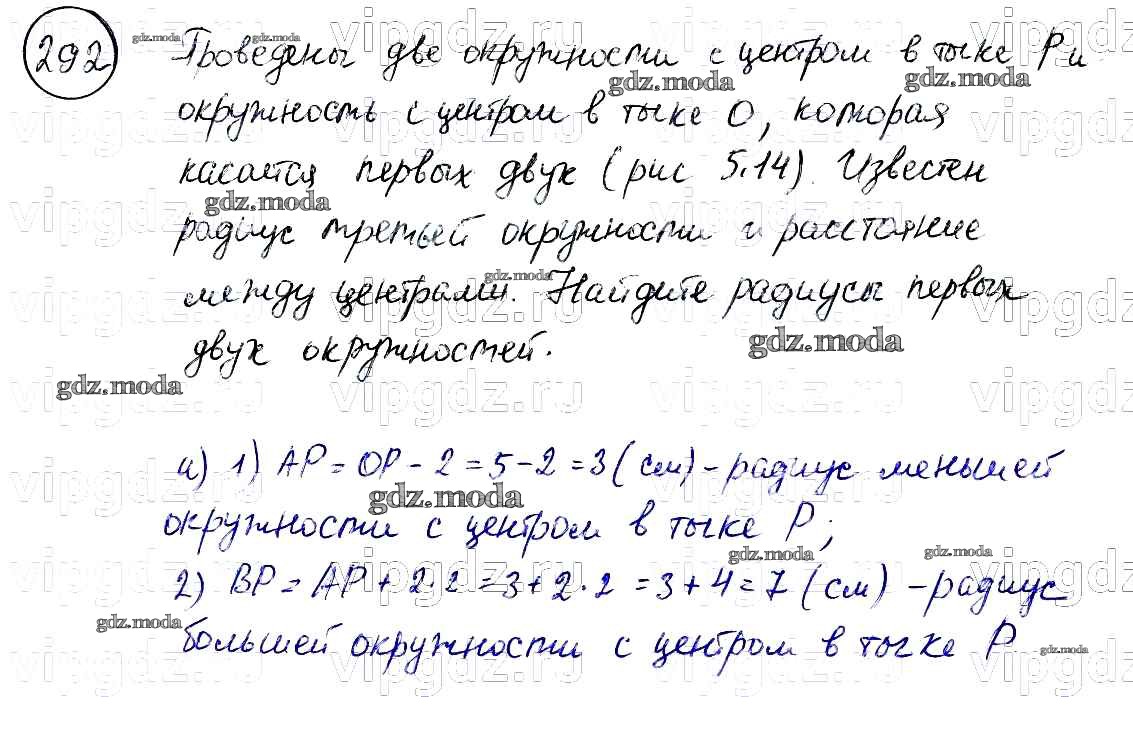 292 Проведены две окружности с центром в точке P и
окружность с центром в точке O, которая
касается первых двух (рис 5.14). Известен
радиус третьей окружности и расстояние
между центрами. Найдите радиусы первых
двух окружностей.
а) 1) AP = OP - 2 = 5 - 2 = 3 (см) - радиус меньшей
окружности с центром в точке P;
2) BP = AP + 2·2 = 3 + 2·2 = 3 + 4 = 7 (см) - радиус
большей окружности с центром в точке P
gdz.moda
vipgdz.ru